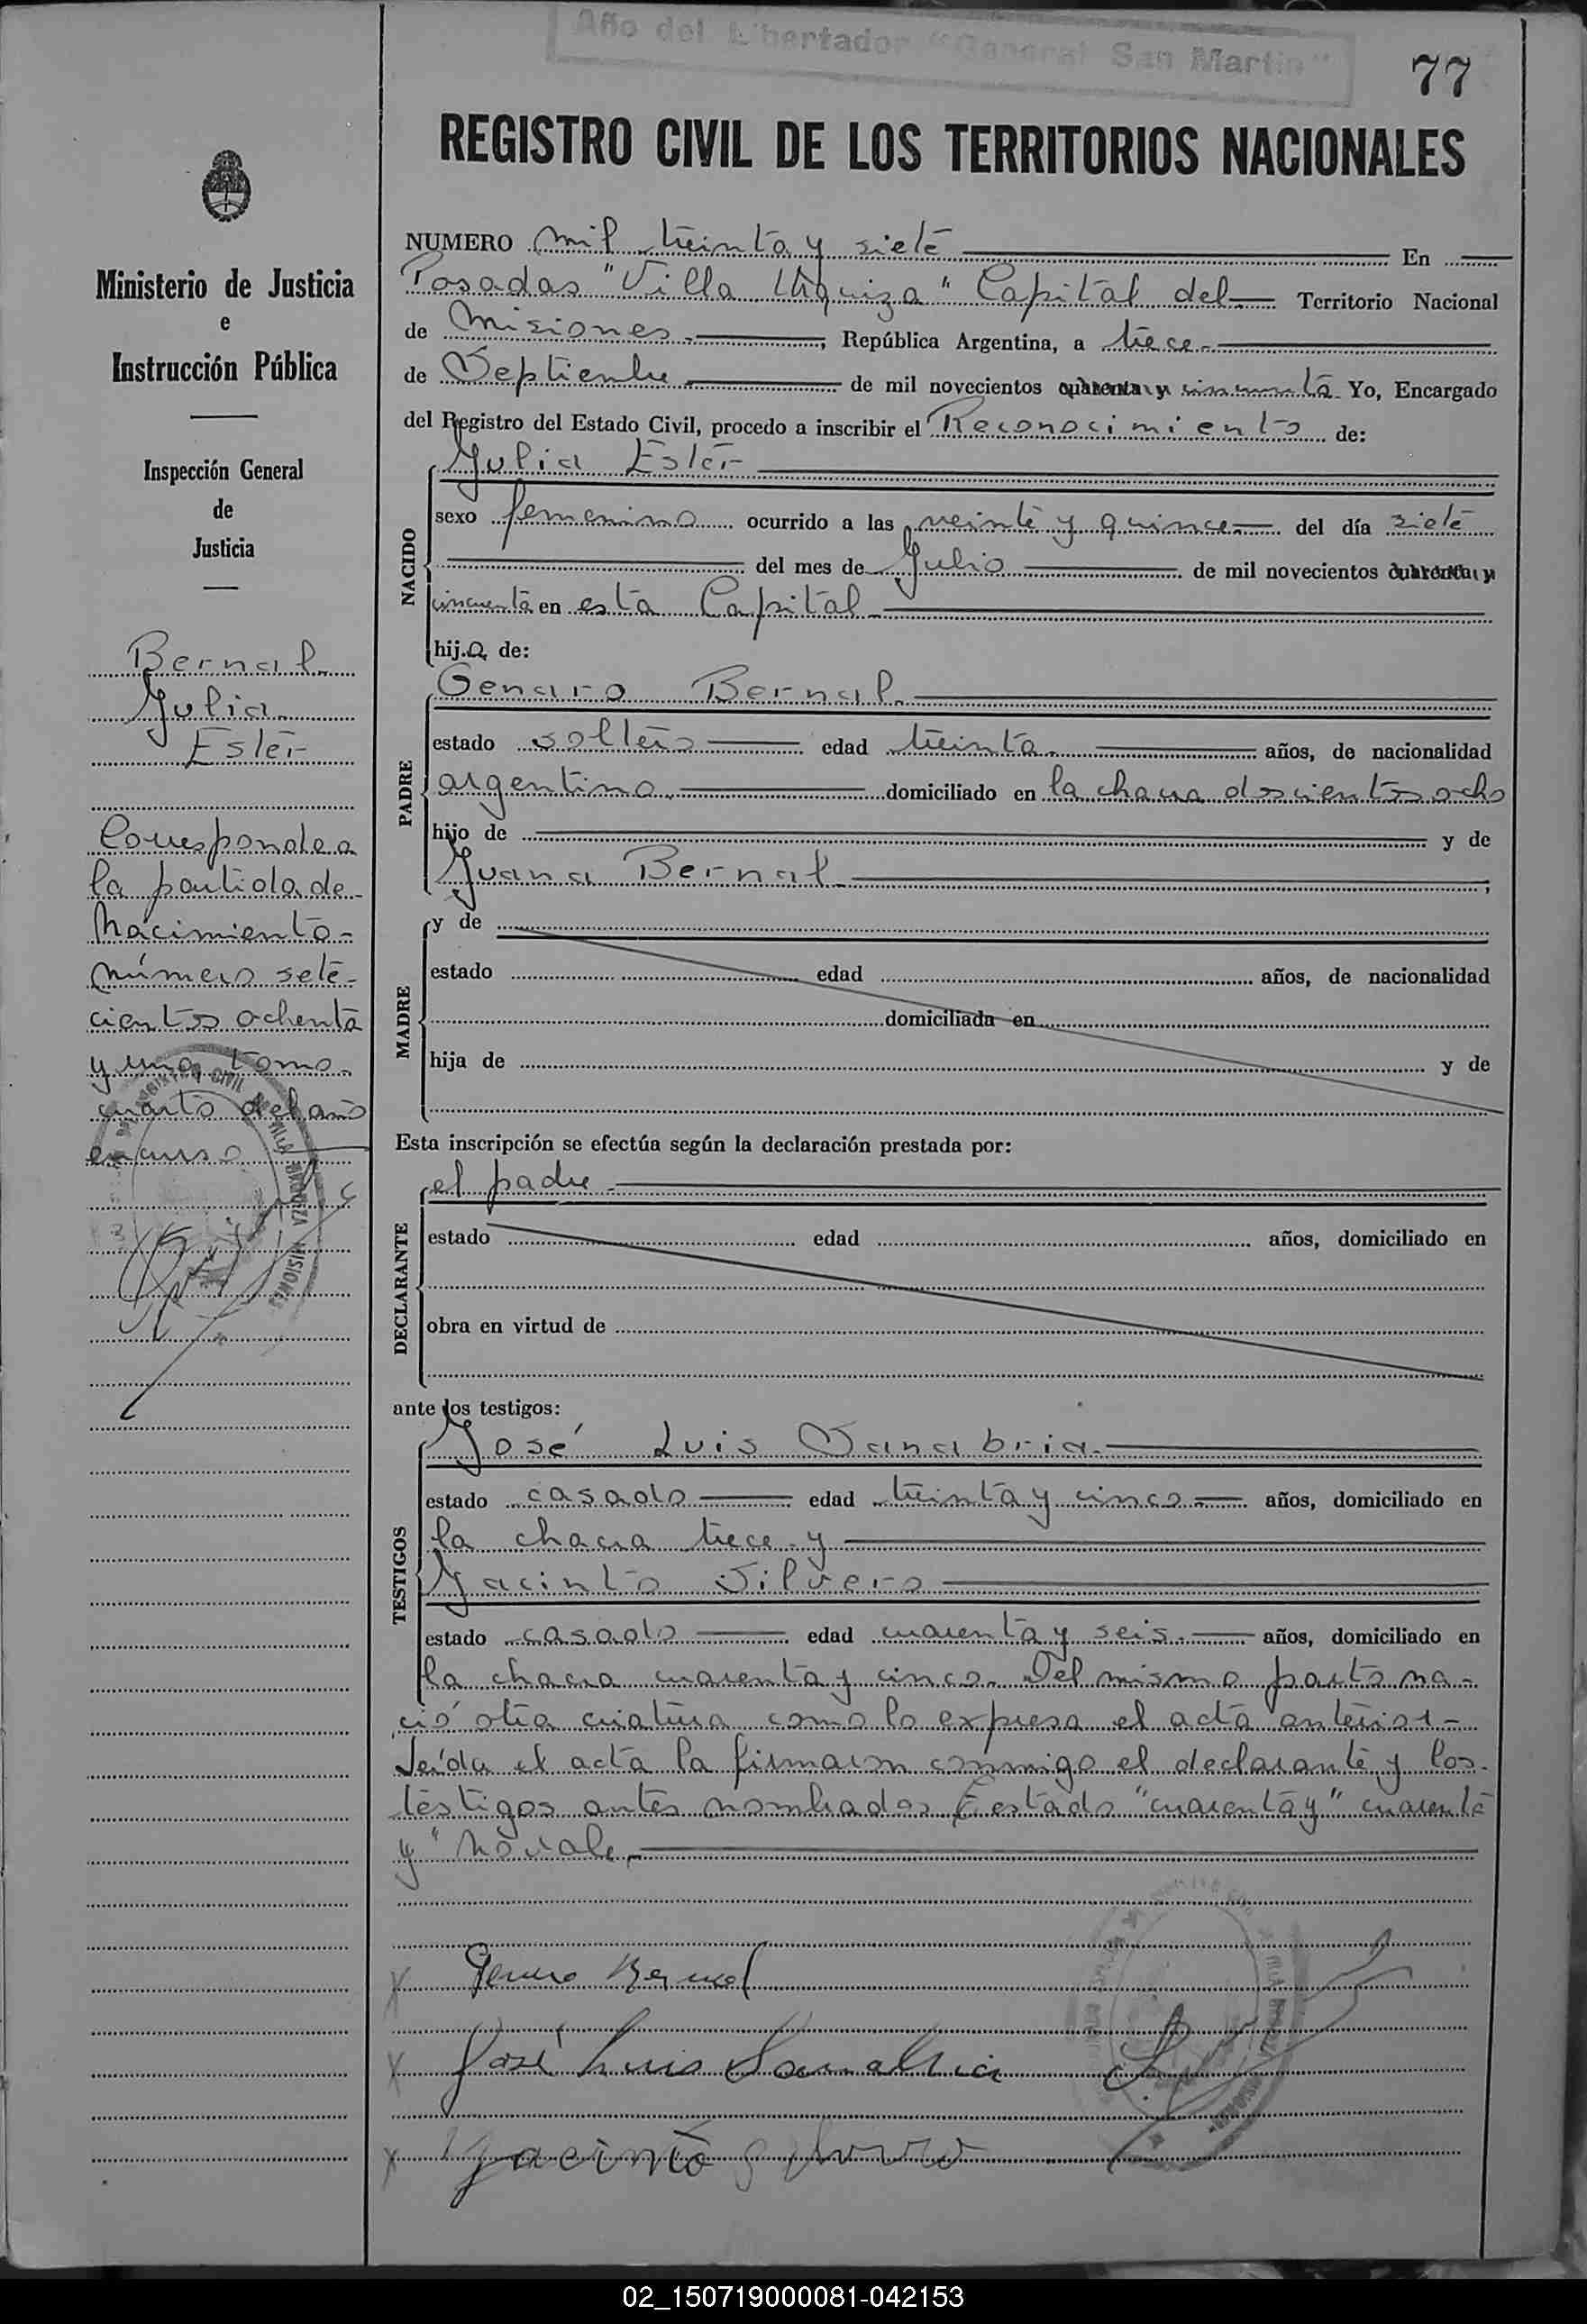 Año del Libertador "General San Martin"
77
REGISTRO CIVIL DE LOS TERRITORIOS NACIONALES
Ministerio de Justicia
e
Instrucción Pública
Inspección General
de
Justicia
Bernal
Julia
Ester
Corresponde a
la partida de
Nacimiento-
número sete-
cientos ochenta
y uno tomo
cuarto del año
en curso
NUMERO mil treinta y siete En
Posadas "Villa Urquiza" Capital del Territorio Nacional
de Misiones.- , República Argentina, a trece.-
de Septiembre de mil novecientos cuarenta y cincuenta Yo, Encargado
del Registro del Estado Civil, procedo a inscribir el Reconocimiento de:
NACIDO
Julia Ester
sexo femenino ocurrido a las veinte y quince del día siete
del mes de Julio de mil novecientos cuarenta y
cincuenta en esta Capital
hija de:
PADRE
Genaro Bernal
estado soltero edad treinta. años, de nacionalidad
argentino domiciliado en la chacra doscientos ocho
hijo de y de
Juana Bernal ,
MADRE
y de
estado edad años, de nacionalidad
domiciliada en
hija de y de
Esta inscripción se efectúa según la declaración prestada por:
DECLARANTE
el padre
estado edad años, domiciliado en
obra en virtud de
ante los testigos:
TESTIGOS
José Luis Sanabria
estado casado edad treinta y cinco años, domiciliado en
la chacra trece y
Jacinto Silvero
estado casado edad cuarenta y seis. años, domiciliado en
la chacra cuarenta y cinco. Del mismo parto na-
ció otra criatura como lo expresa el acta anterior-
Leída el acta la firmaron conmigo el declarante y los
testigos antes nombrados. Testado "cuarenta y" cuarenta
y" No vale.-
Genaro Bernal
José Luis Sanabria
Jacinto Silvero
02_150719000081-042153